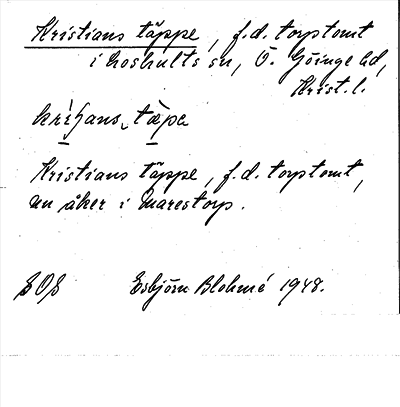 Kristians täppe, f.d. torptomt
i Loshults sn, Ö. Göinge hd,
Krist. l.
täpa
Kristians täppe, f.d. torptomt,
nu åker i Marestorp.
Esbjörn Blohmé 1948.